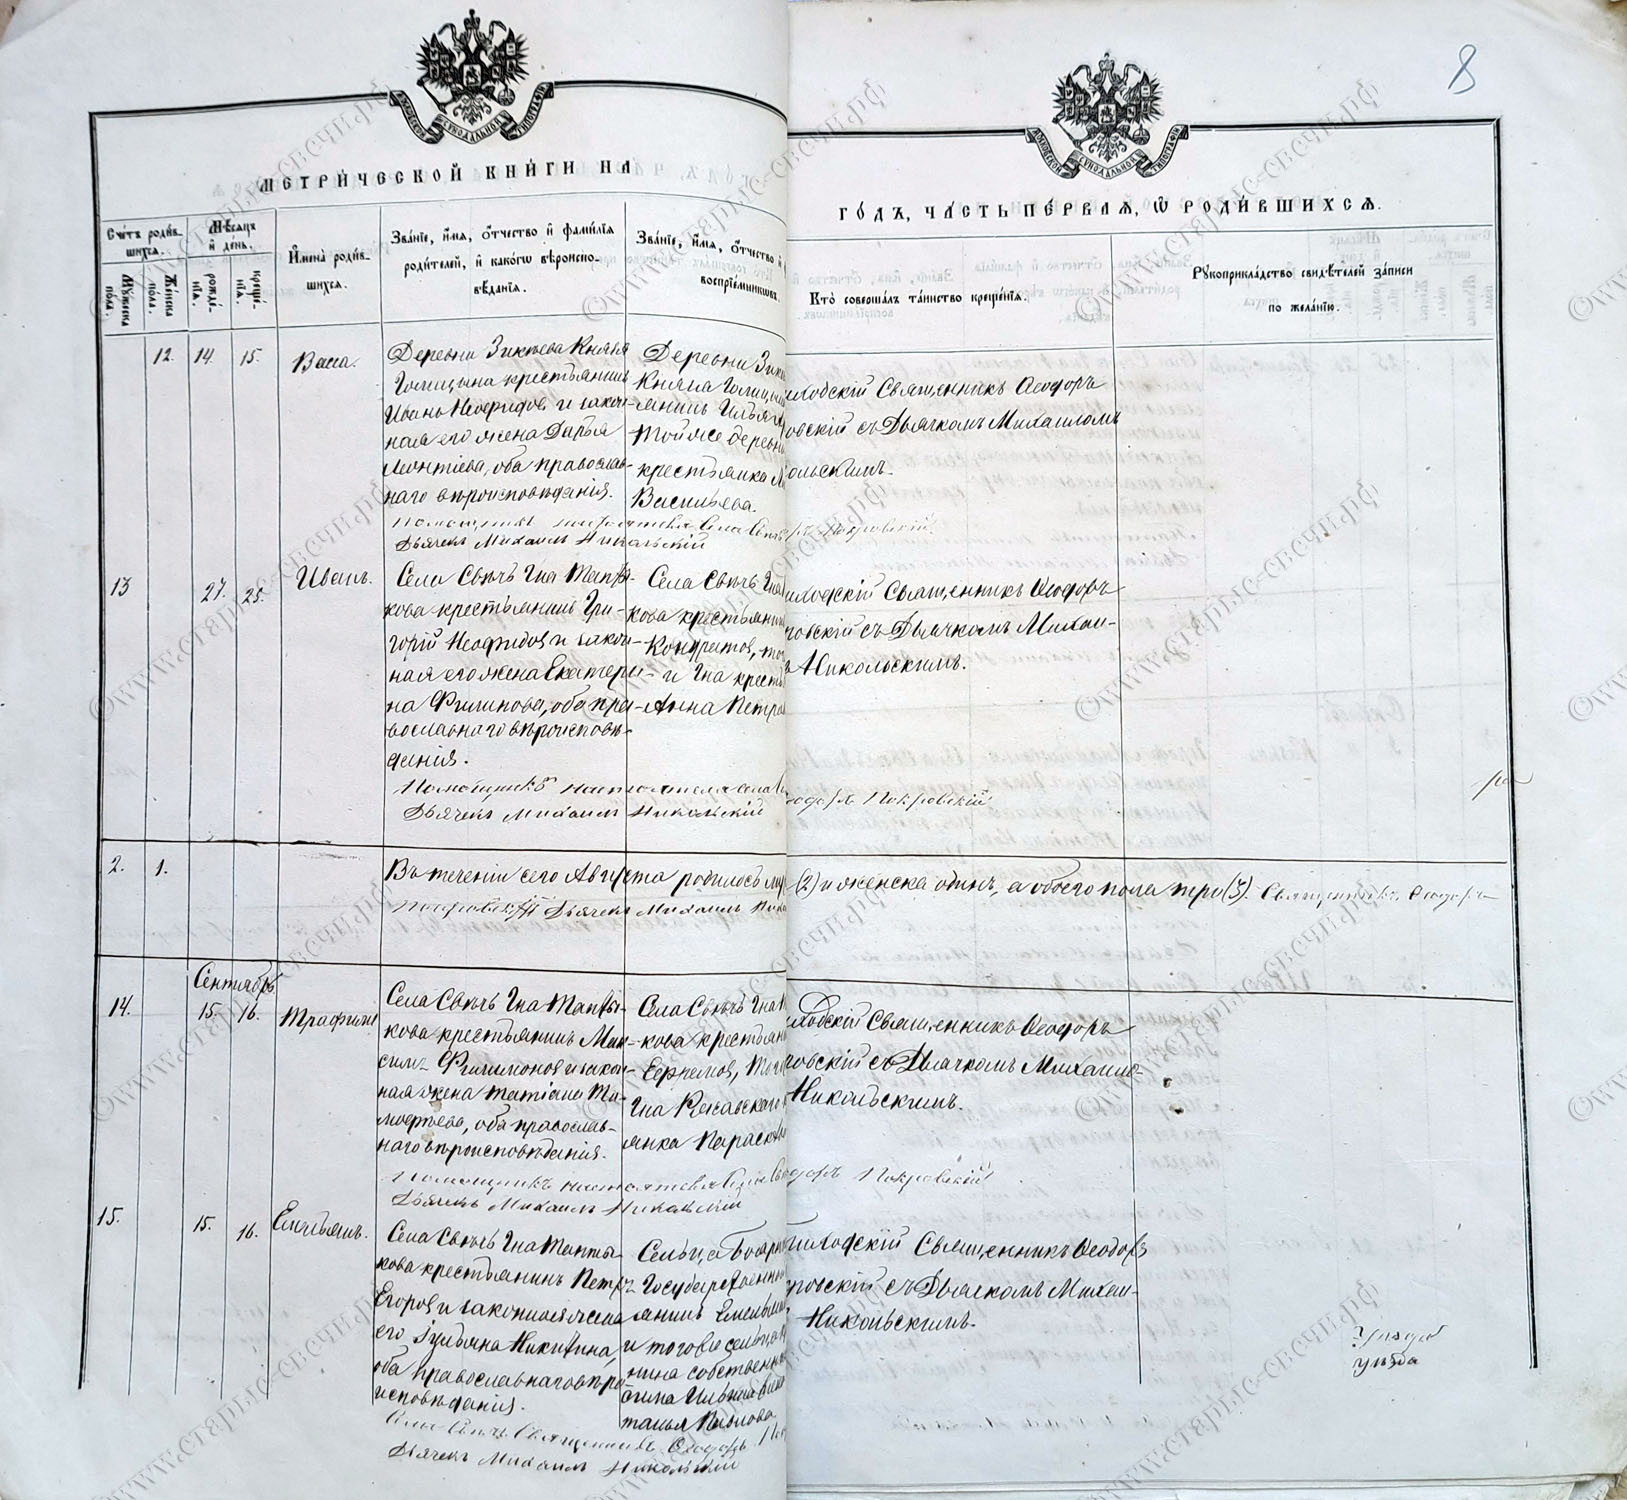 8
МЕТРИЧЕСКОЙ КНИГИ НА
ГОДЪ, ЧАСТЬ ПЕРВАЯ, Ѿ РОДИВШИХСЯ.
Счетъ родив-
шихся.
Мужеска пола.
Женска пола.
Мѣсяцъ и день.
рождения.
крещения.
Имена родив-
шихся.
Званіе, имя, отчество и фамилія
родителей, и какогѡ вѣроиспо-
вѣданія.
Званіе, имя, отчество и
воспріемниковъ.
Кто совершалъ таинство крещенія.
Рукоприкладство свидѣтелей записи
по желанію.
12. 14. 15. Васса.
Деревни Зикѣева Князя
Голицына крестьянинъ
Иванъ Неофидов, и закон-
ная его жена Дарья
Леонтіева, оба православ-
наго вѣроисповѣданія.
Деревни Зик
Князя Голицы
янинъ Илья
Той же деревн
крестьянка
Васильева.
иходскій Священникъ Ѳеодоръ
овскій съ Дьячкомъ Михаиломъ
ольскимъ.
Помощникъ настоятеля Села Свѣч ръ Покровскій
Дьячекъ Михаилъ Никольскій
13 27. 28. Иванъ.
Села Свѣчь Гна Тапты-
кова крестьянинъ Гри-
горій Неофидов и закон-
ная его жена Екатери-
на Филипова, оба пра-
вославнаго вѣроисповѣ-
данія.
Села Свѣчь Гна
кова крестьянин
Кондратов,
и Гна крест
Анна Петров
иходскій Священникъ Ѳеодоръ
ровскій съ Дьячкомъ Михаи-
Никольскимъ.
Помощникъ настоятеля села одоръ Покровскій
Дьячекъ Михаилъ Никольскій
2. 1.
Въ теченіи сего Августа родилось му (2) и женска одинъ, а обоего пола три (3). Священникъ Ѳеодоръ
Покровскій Дьячекъ Михаилъ Нико
Сентябрь
14. 15. 16. Трафимъ
Села Свѣчь Гна Тапты-
кова крестьянинъ Мак-
симъ Филимонов и закон-
ная жена Татіана Ти-
мофѣева, оба православ-
наго вѣроисповѣданія.
Села Свѣчь Гна
кова крестьян
Ефремов,
Гна Ржавскаго
янка Параскев
иходскій Священникъ Ѳеодоръ
ровскій съ Дьячкомъ Михаило-
Никольскимъ.
Помощникъ настоятеля Села одоръ Покровскій
Дьячекъ Михаилъ Никольскій
15. 15. 16. Емельянъ.
Села Свѣчь Гна Тапты-
кова крестьянинъ Петръ
Егоров и законная жена
его Іульяна Никитина,
оба православнаго вѣро-
исповѣданія.
Сельца
Государственн
янинъ Емельян
и того же сельца
нина собственн
Павлова
иходскій Священникъ Ѳеодоръ
ровскій съ Дьячкомъ Михаи-
Никольскимъ.
Села Свѣчь Священникъ Ѳеодоръ По
Дьячекъ Михаилъ Никольскій
уѣзда
©www.старыс-свсчи.рф